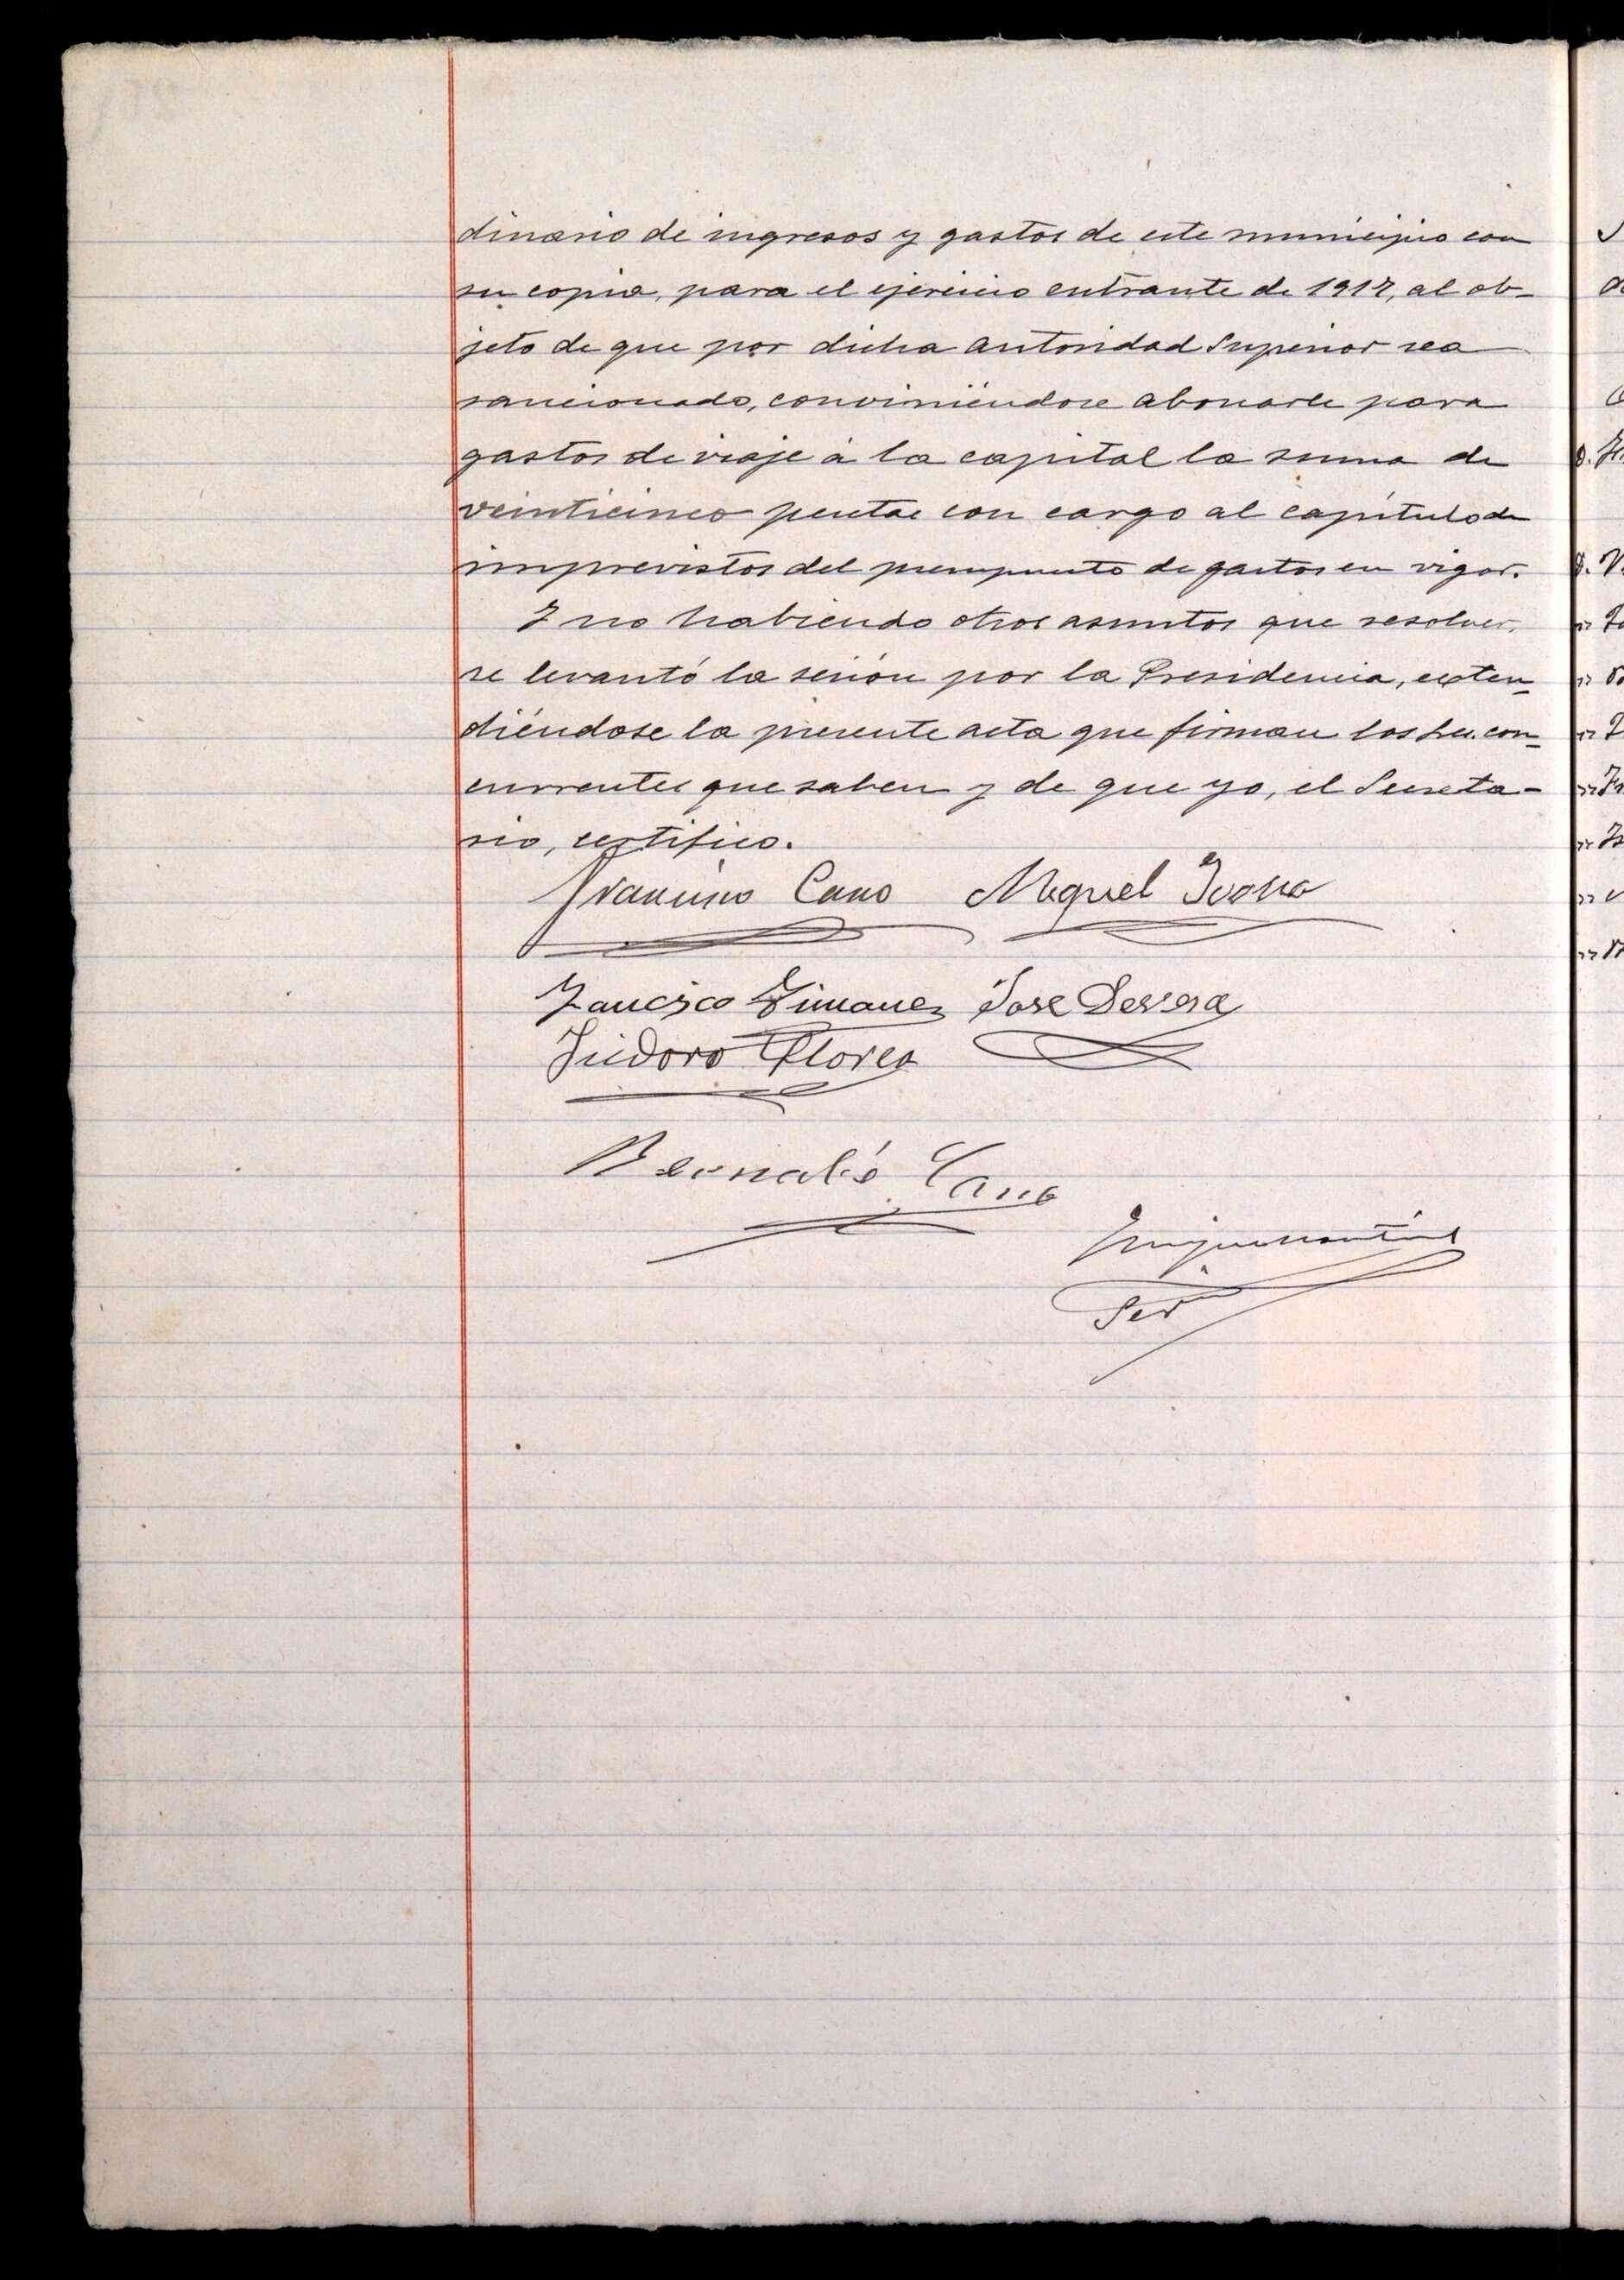 dinario de ingresos y gastos de este municipio con
su copia, para el ejercicio entrante de 1917, al ob-
jeto de que por dicha autoridad Superior sea
sancionado, conviniéndose abonarle para
gastos de viaje á la capital la suma de
veinticinco pesetas con cargo al capítulo de
imprevistos del presupuesto de gastos en vigor.
Y no habiendo otros asuntos que resolver,
se levantó la sesión por la Presidencia, exten-
diéndose la presente acta que firman los Sres. con-
currentes que saben y de que yo, el Secreta-
rio, certifico.
Francisco Cano Miguel
Francisco Jimenez Jose
Isidoro Flores
Bernabé Cano